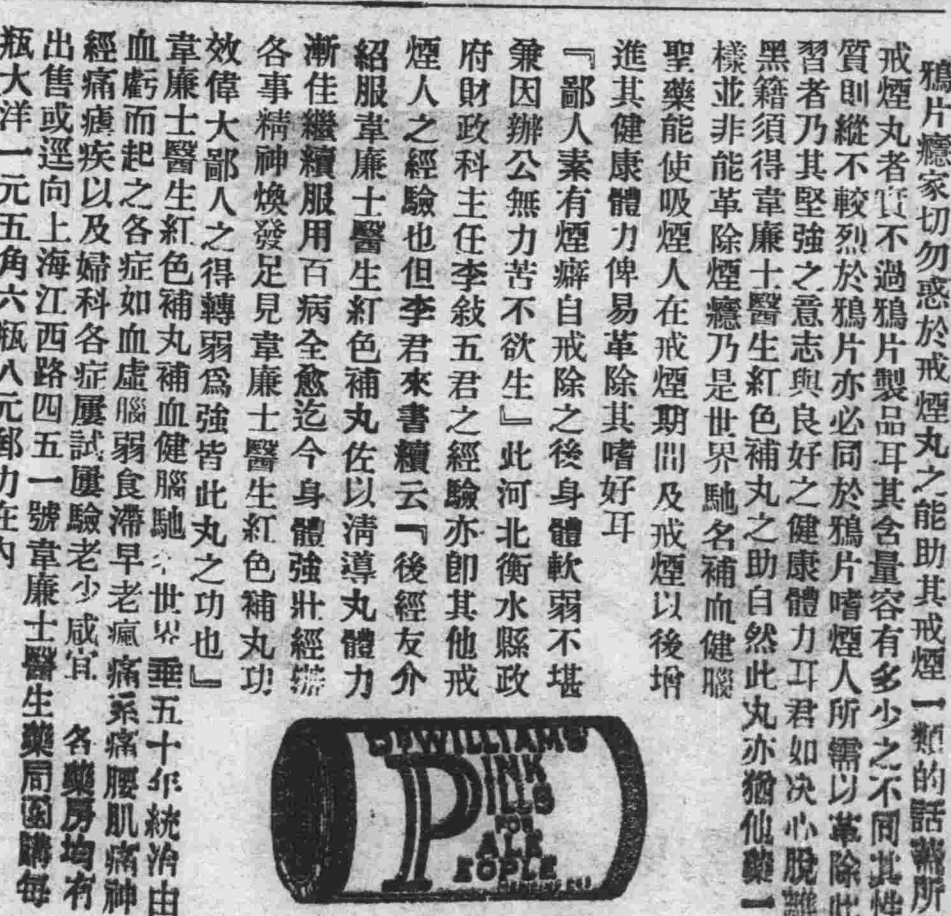 鴉片癮家切勿惑於戒煙丸之能助其戒煙一類的話蓋所
戒煙丸者實不過鴉片製品耳其含量容有多少之不同其性
質則縱不較烈於鴉片亦必同於鴉片嗜煙人所需以革除此
習者乃其堅強之意志與良好之健康體力耳君如决心脫離
黑籍須得韋廉士醫生紅色補丸之助自然此丸亦猶他藥一
樣並非能革除煙癮乃是世界馳名補血健腦
聖藥能使吸煙人在戒煙期間及戒煙以後增
進其健康體力俾易革除其嗜好耳
『鄙人素有煙癖自戒除之後身體軟弱不堪
兼因辦公無力苦不欲生』此河北衡水縣政
府財政科主任李敍五君之經驗亦卽其他戒
煙人之經驗也但李君來書續云『後經友介
紹服韋廉士醫生紅色補丸佐以淸導丸體力
漸佳繼續服用百病全愈迄今身體強壯經辦
各事精神煥發足見韋廉士醫生紅色補丸功
效偉大鄙人之得轉弱爲強皆此丸之功也』
韋廉士醫生紅色補丸補血健腦馳 世界垂五十年統治由
血虧而起之各症如血虛腦弱食滯早老瘋痛系痛腰肌痛神
經痛瘧疾以及婦科各症屢試屢驗老少咸宜 各藥房均有
出售或逕向上海江西路四五一號韋廉士醫生藥局函購每
瓶大洋一元五角六瓶八元郵力在內
DR WILLIAMS
PINK
PILLS
FOR
PALE
PEOPLE